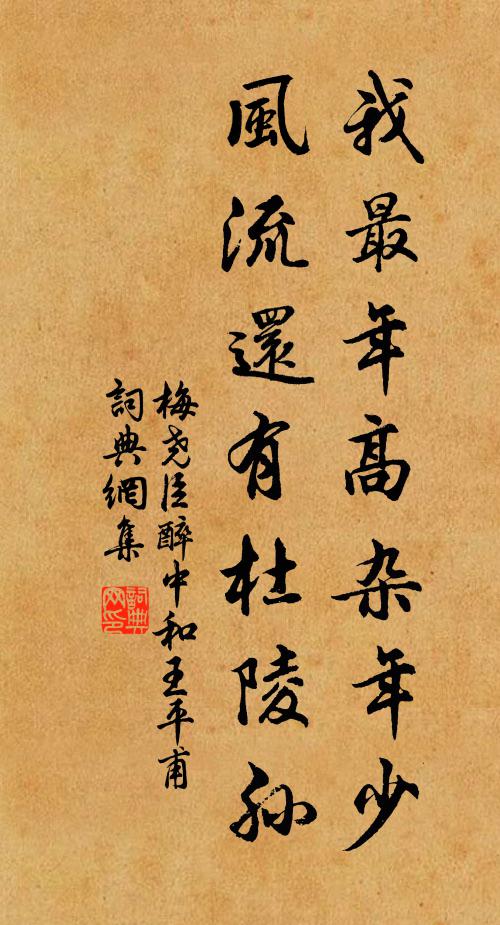 我最年高杂年少
風流還有杜陵孙
梅尧臣醉中和王平甫
詞典網集
詞典
网印